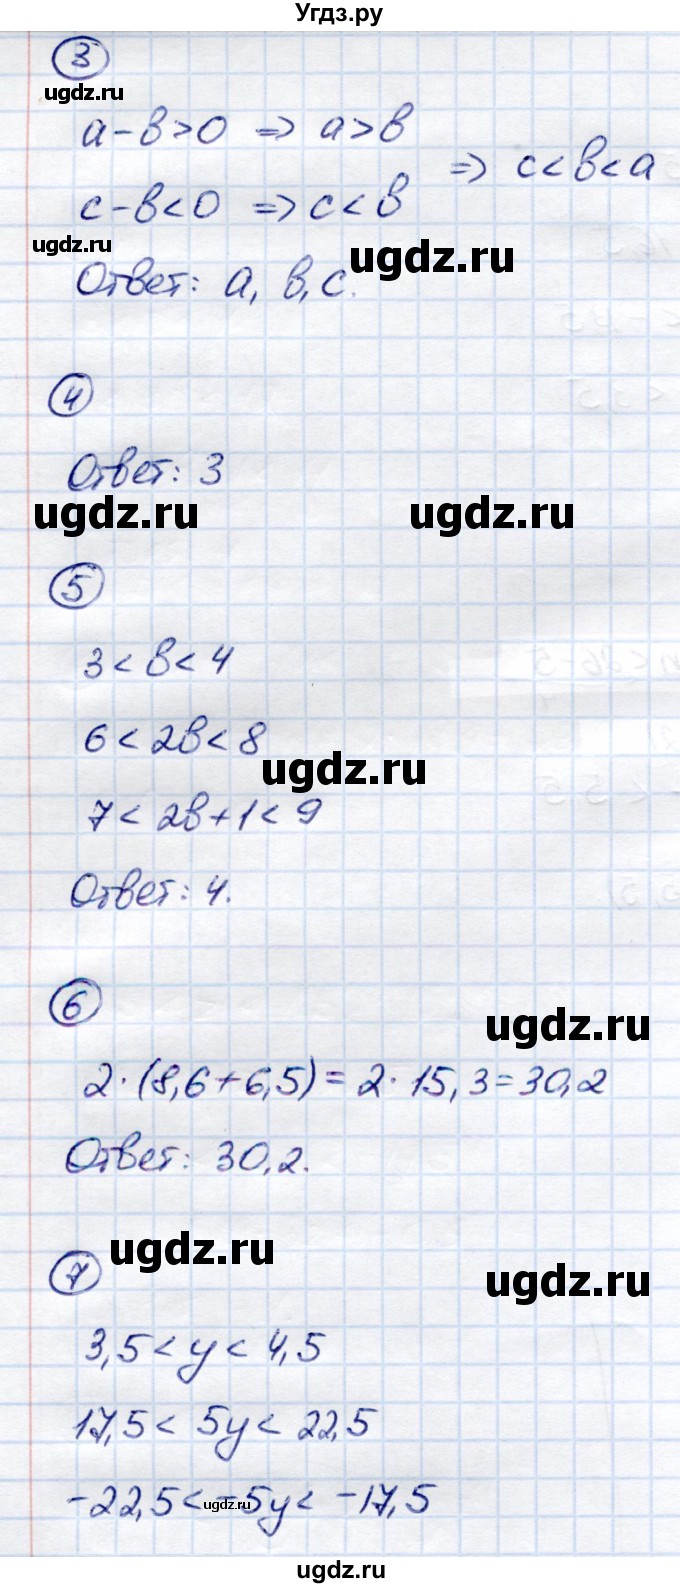 Угдз.ру
3
ugdz.ru
a-b>0 => a>b
=> c<b<a
c-b<0 => c<b
ugdz.ru
ugdz.ru
Ответ: a, b, c.
4
Ответ: 3
ugdz.ru
ugdz.ru
5
3<b<4
6<2b<8
ugdz.ru
7<2b+1<9
Ответ: 4.
6
ugdz.ru
2·(8,6+6,5)=2·15,3=30,2
Ответ: 30,2.
ugdz.ru
7
ugdz.ru
3,5<y<4,5
17,5<5y<22,5
-22,5<-5y<-17,5
ugdz.ru
ugdz.ru